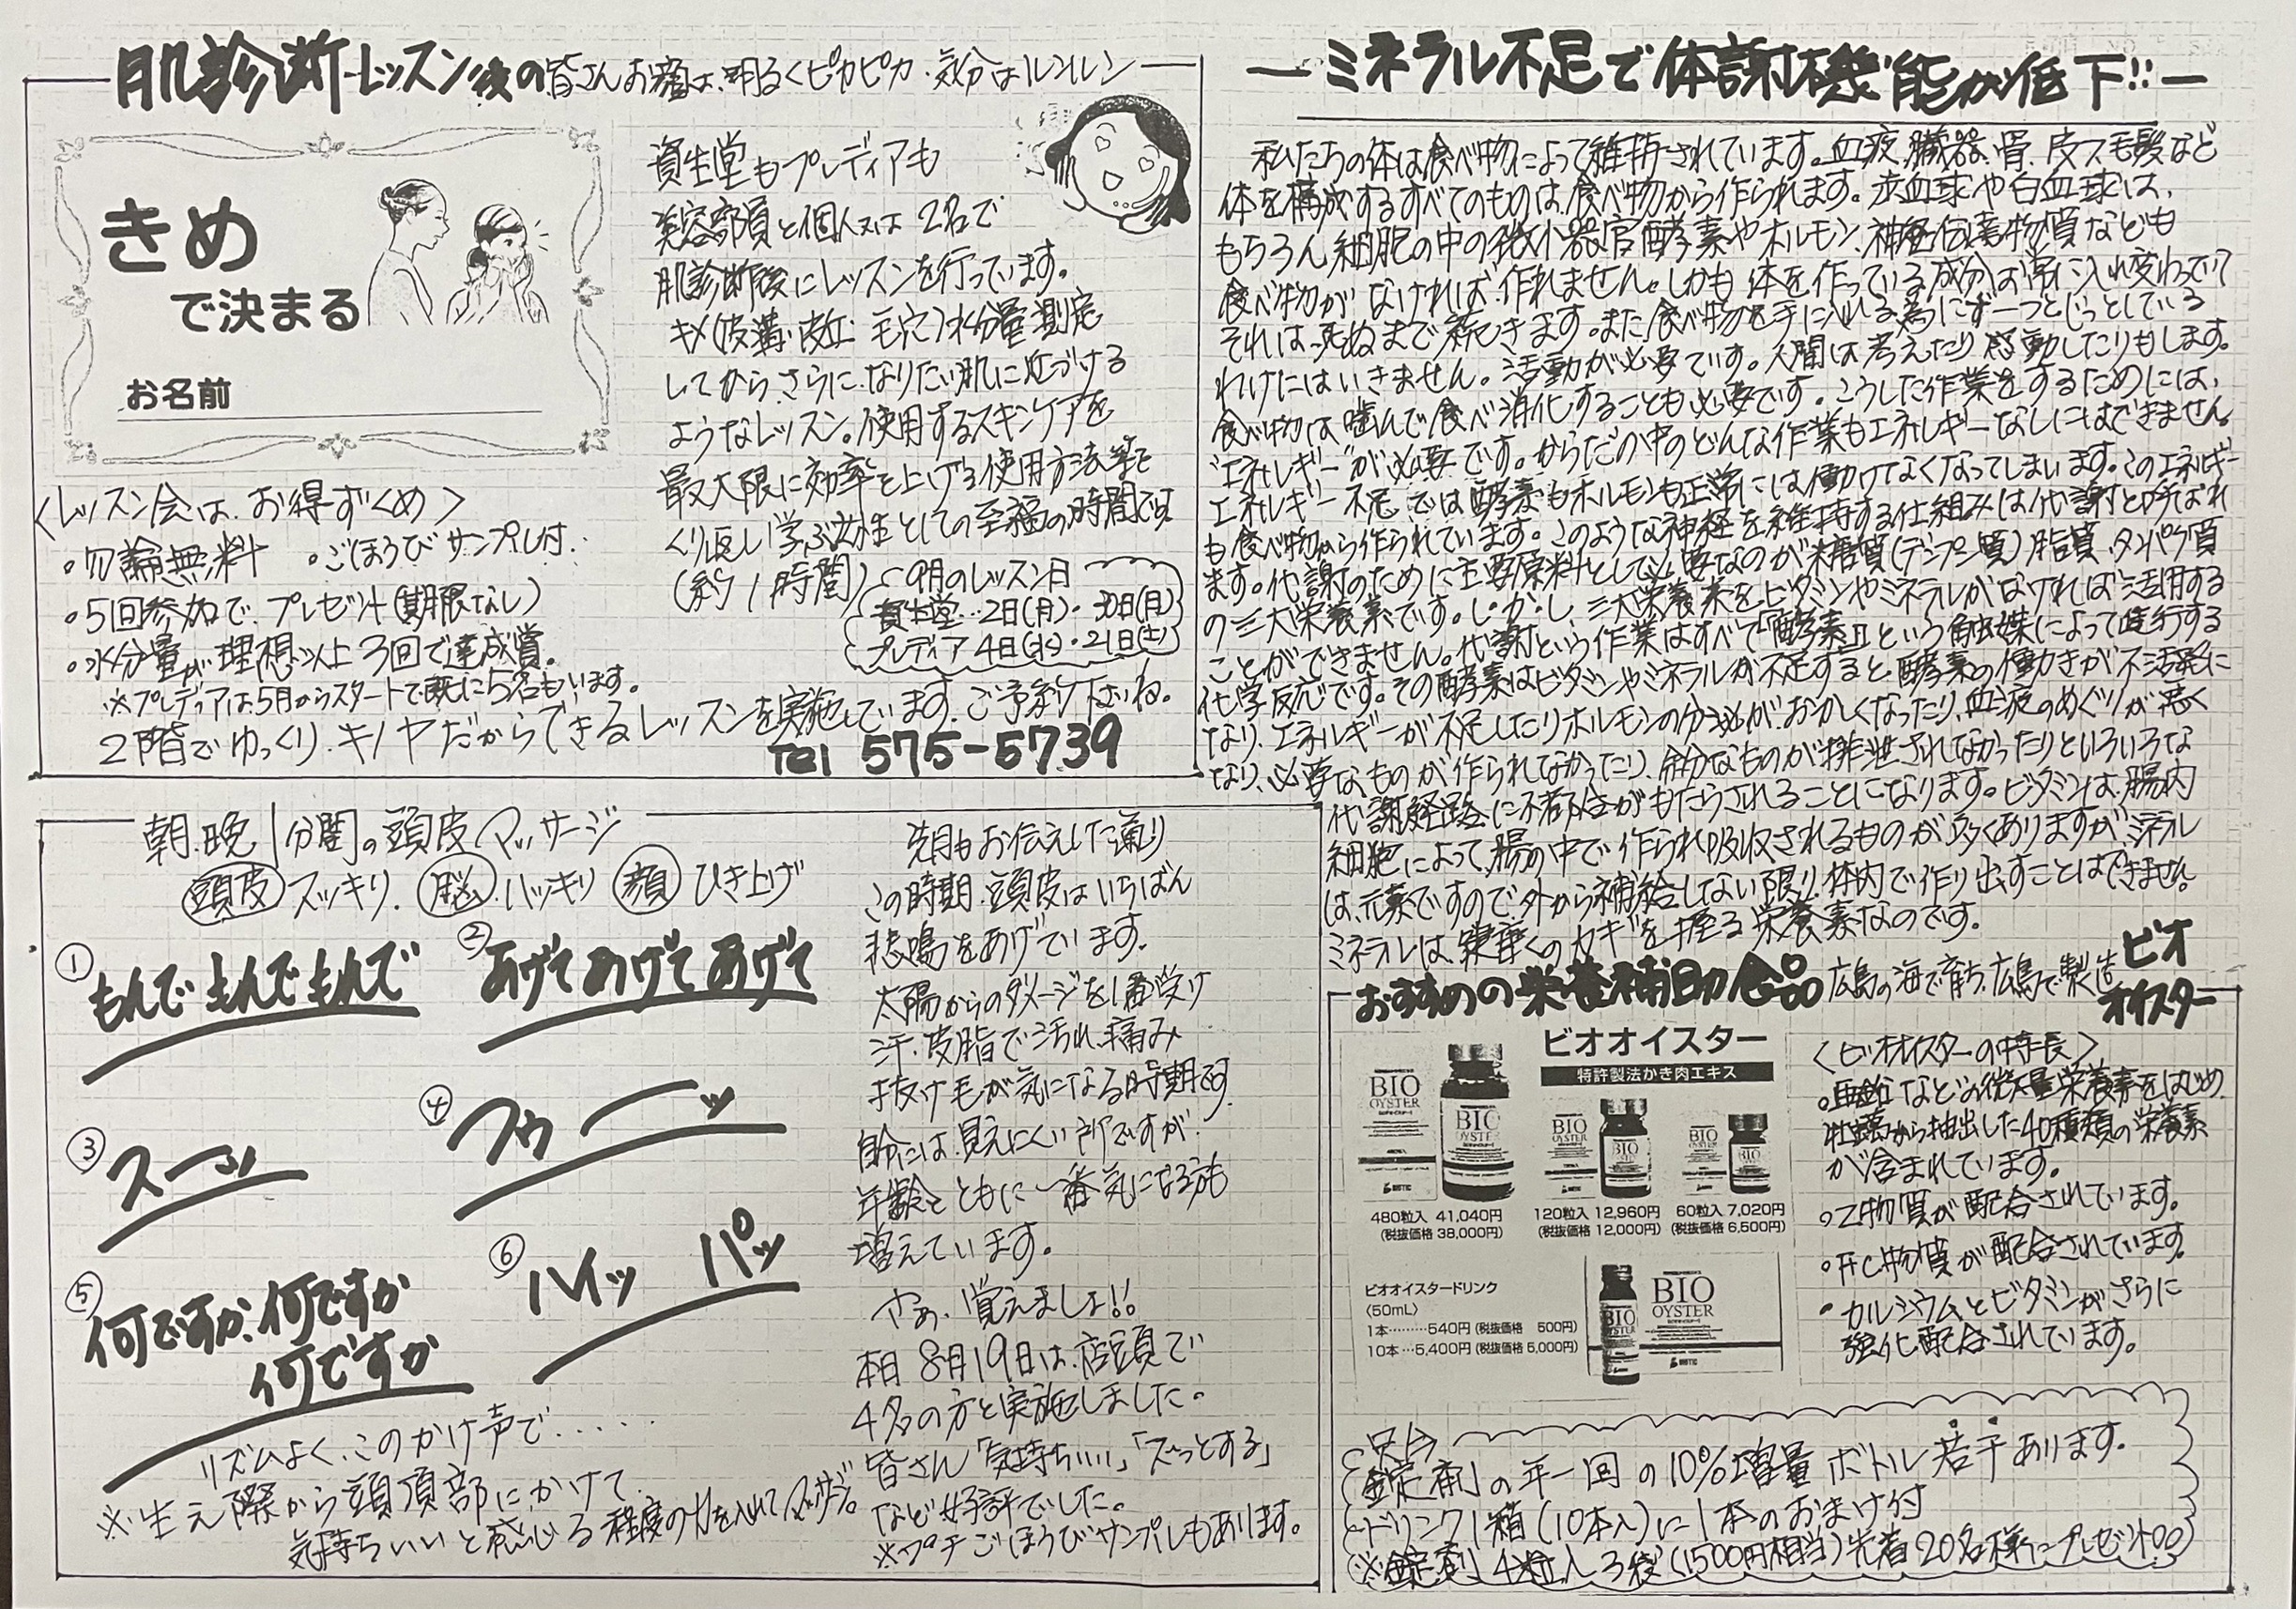 肌診断レッスン後の皆さんお顔は、明るくピカピカ 気分はルンルン
きめ
で決まる
お名前
資生堂もプレディアも
美容部員と個人又は2名で
肌診断後にレッスンを行っています。
キメ(皮溝・皮丘・毛穴)水分量測定
してから、さらに、なりたい肌に近づける
ようなレッスン。使用するスキンケアを
最大限に効率を上げる使用方法等を
くり返し学ぶ女性としての至福の時間です
(約1時間)
9月のレッスン日
資生堂…2日(月)・30日(月)
プレディア 4日(水)・21日(土)
<レッスン会は、お得ずくめ>
・勿論無料 ・ごほうびサンプル付.
・5回参加で、プレゼント(期限なし)
・水分量が理想以上3回で達成賞。
※プレディアは5月からスタートで既に5名もいます。
2階でゆっくり、キノヤだからできるレッスンを実施しています。ご予約下さいね。
Tel 575-5739
朝晩1分間の頭皮マッサージ
頭皮スッキリ、脳ハッキリ 顔ひき上げ
① もんでもんでもんで
② あげてあげてあげて
③ スーッ
④ フゥーッ
⑤ 何ですか、何ですか
何ですか
⑥ ハイッ パッ
リズムよく、このかけ声で・・・・
※生え際から頭頂部にかけて、
気持ちいいと感じる程度の力を入れてマッサージ。
先月もお伝えした通り
この時期、頭皮はいちばん
悲鳴をあげています。
太陽からのダメージを1番受け
汗・皮脂で汚れ、痛み
抜け毛が気になる時期です.
自分には、見えにくい所ですが、
年齢とともに一番気になる方も
増えています。
さぁ、覚えましょ!!
本日8月19日は、店頭で
4名の方と実施しました。
皆さん「気持ちいい」「スーっとする」
など好評でした。
※プチごほうびサンプルもあります。
ーミネラル不足で体謝機能が低下!!ー
私たちの体は食べ物によって維持されています。血液、臓器、骨、皮フ毛髪など
体を構成するすべてのものは、食べ物から作られます。赤血球や白血球は、
もちろん、細胞の中の微小器官酵素やホルモン、神経伝達物質なども
食べ物がなければ、作れません。しかも、体を作っている成分は常に入れ変わって
それは、死ぬまで続きます。また、食べ物を手に入れる為にずーっとじっとしている
わけにはいきません。活動が必要です。人間は考えたり感動したりもします。
食べ物は噛んで食べ消化することも必要です。こうした作業をするためには、
“エネルギー”が必要です。からだの中のどんな作業もエネルギーなしにはできません。
エネルギー不足では酵素もホルモンも正常には働けてなくなってしまいます。このエネルギー
も食べ物から作られています。このような神経を維持する仕組みは代謝と呼ばれ
ます。代謝のために主要原料として必要なのが糖質(デンプン質)脂質、タンパク質
の三大栄養素です。しかし、三大栄養素をビタミンやミネラルがなければ活用する
ことができません。代謝という作業はすべて『酵素』という触媒によって進行する
化学反応です。その酵素はビタミンやミネラルが不足すると、酵素の働きが不活発に
なり、エネルギーが不足したりホルモンの分泌がおかしくなったり、血液のめぐりが悪く
なり、必要なものが作られなかったり、余分なものが排泄されなかったりといろいろな
代謝経路に不都合がもたらされることになります。ビタミンは、腸内
細胞によって、腸の中で作られ吸収されるものが多くありますがミネラル
は、元素ですので、外から補給しない限り体内で作り出すことはできません。
ミネラルは、健康へのカギを握る栄養素なのです。
おすすめの栄養補助食品 広島の海で育ち、広島で製造 ビオ
オイスター
ビオオイスター
特許製法かき肉エキス
BIO
OYSTER
480粒入 41,040円
(税抜価格 38,000円)
120粒入 12,960円
(税抜価格 12,000円)
60粒入 7,020円
(税抜価格 6,500円)
ビオオイスタードリンク
〈50mL〉
1本………540円(税抜価格 500円)
10本…5,400円(税抜価格 5,000円)
BIO
OYSTER
<ビオオイスターの特長>
・亜鉛などの微量栄養素をはじめ
牡蠣から抽出した40種類の栄養素
が含まれています。
・Z物質が配合されています。
・FC物質が配合されています
・カルシウムとビタミンがさらに
強化配合されています。
只今
錠剤の年一回の10%増量ボトル若干あります。
ドリンク1箱(10本入)に1本のおまけ付
※錠剤4粒入3袋(1500円相当)先着20名様にプレゼント